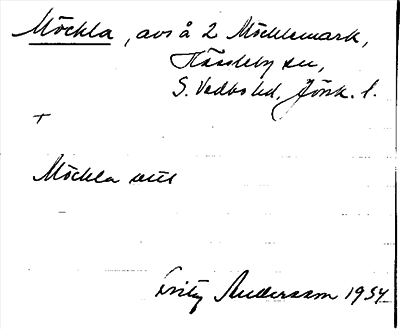 Möckla, avs å 2 Möcklemark,
Hässleby sn,
S. Vedbo hd, Jönk. l.
+
Möckla
Fritz Andersson 1934